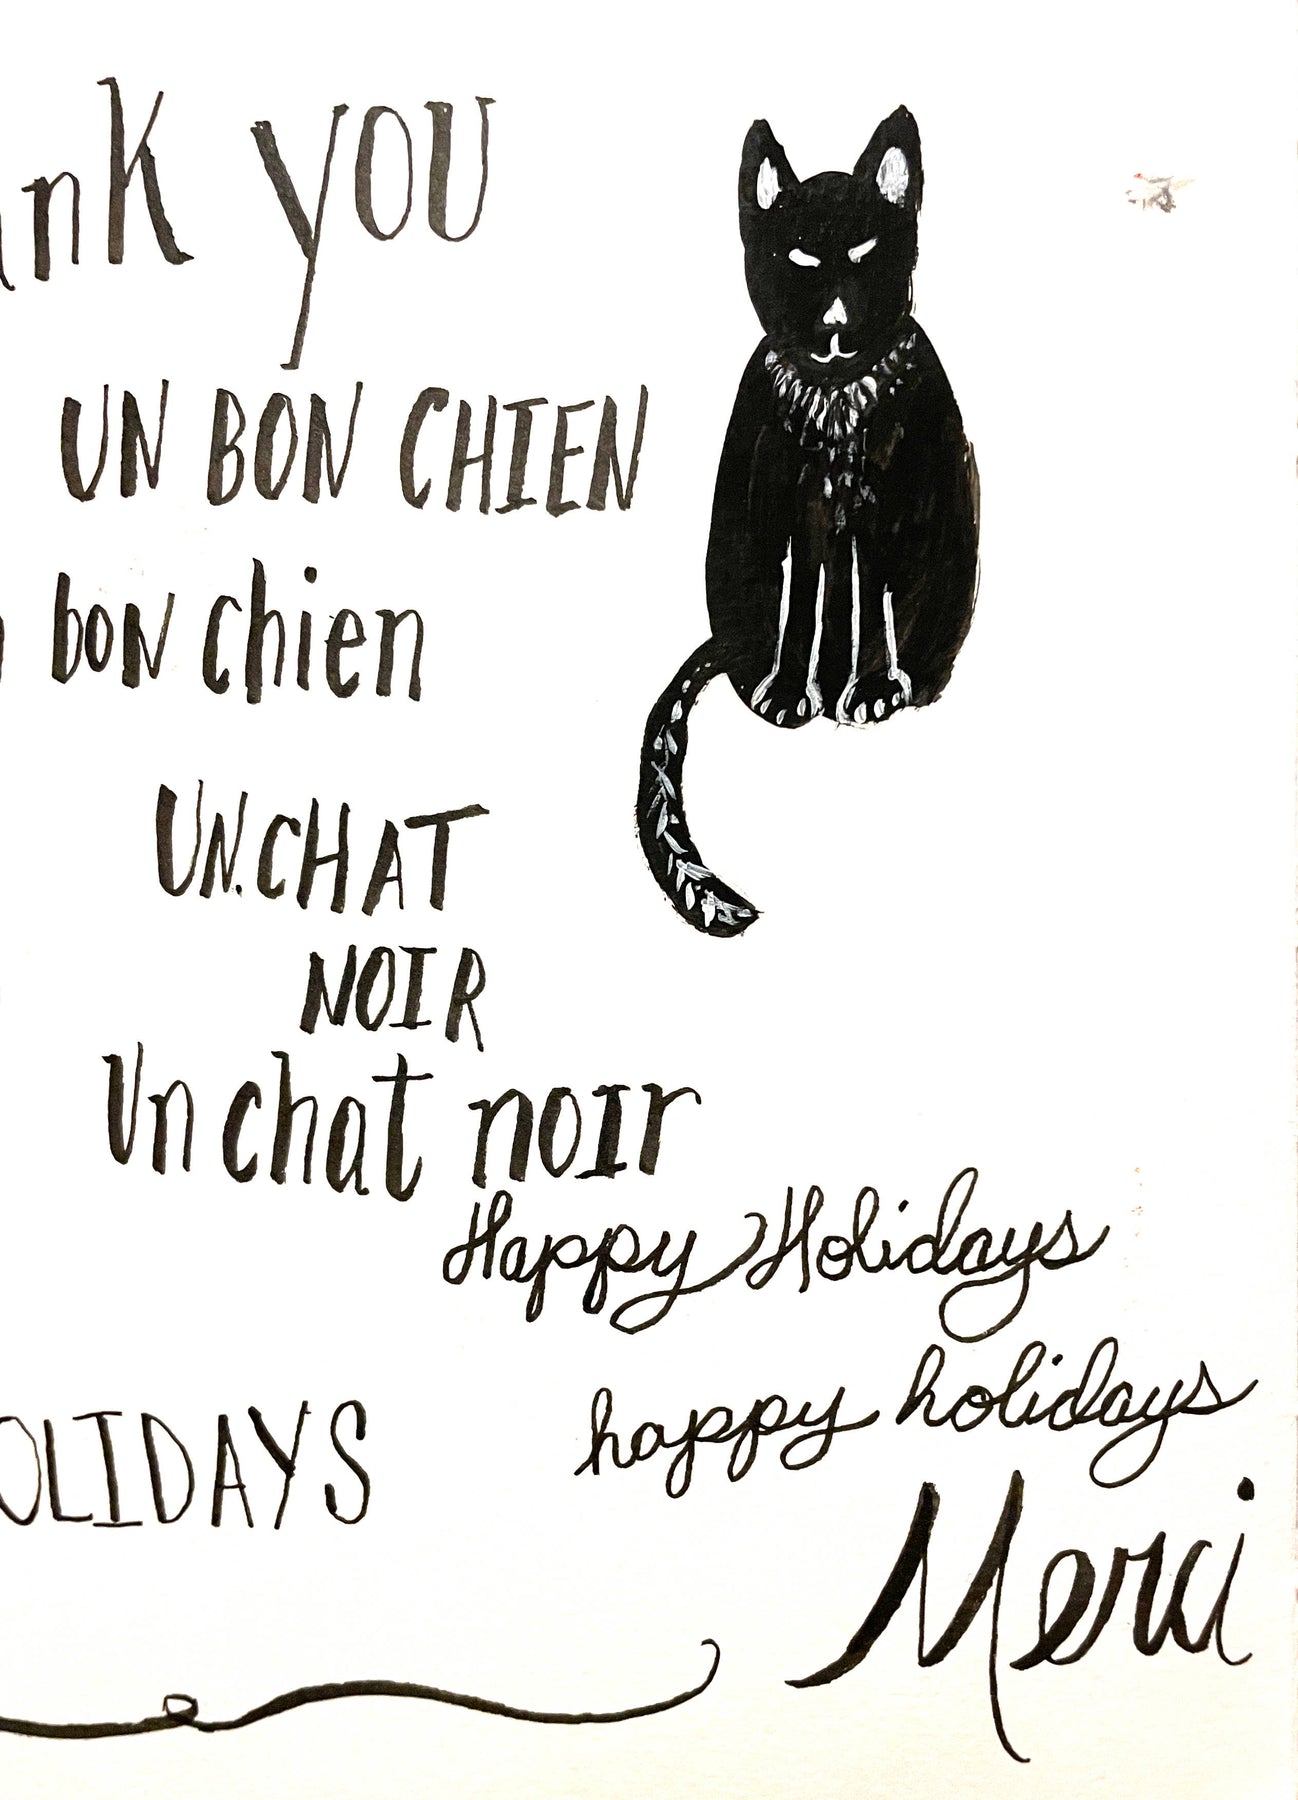 ank you
UN BON CHIEN
bon chien
UN.CHAT
NOIR
Un chat noir
Happy Holidays
happy holidays
OLIDAYS
Merci